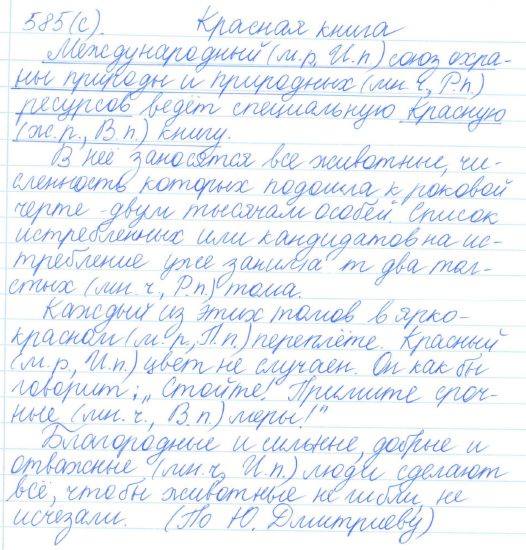 585(с). Красная книга
Международный (м.р, И.п) союз охра-
ны природы и природных (мн.ч, Р.п)
ресурсов ведёт специальную Красную
(ж.р., В.п.) книгу.
В неё заносятся все животные, чи-
сленность которых подошла к роковой
черте - двум тысячам особей. Список
истребленных или кандидатов на ис-
требление уже занимает два тол-
стых (мн.ч, Р.п) тома.
Каждый из этих томов в ярко-
красном (м.р., П.п) переплёте. Красный
(м.р, И.п) цвет не случаен. Он как бы
говорит: „Стойте! Примите сроч-
ные (мн.ч., В.п) меры!"
Благородные и сильные, добрые и
отважные (мн.ч, И.п) люди сделают
всё, чтобы животные не гибли, не
исчезали. (По Ю. Дмитриеву)